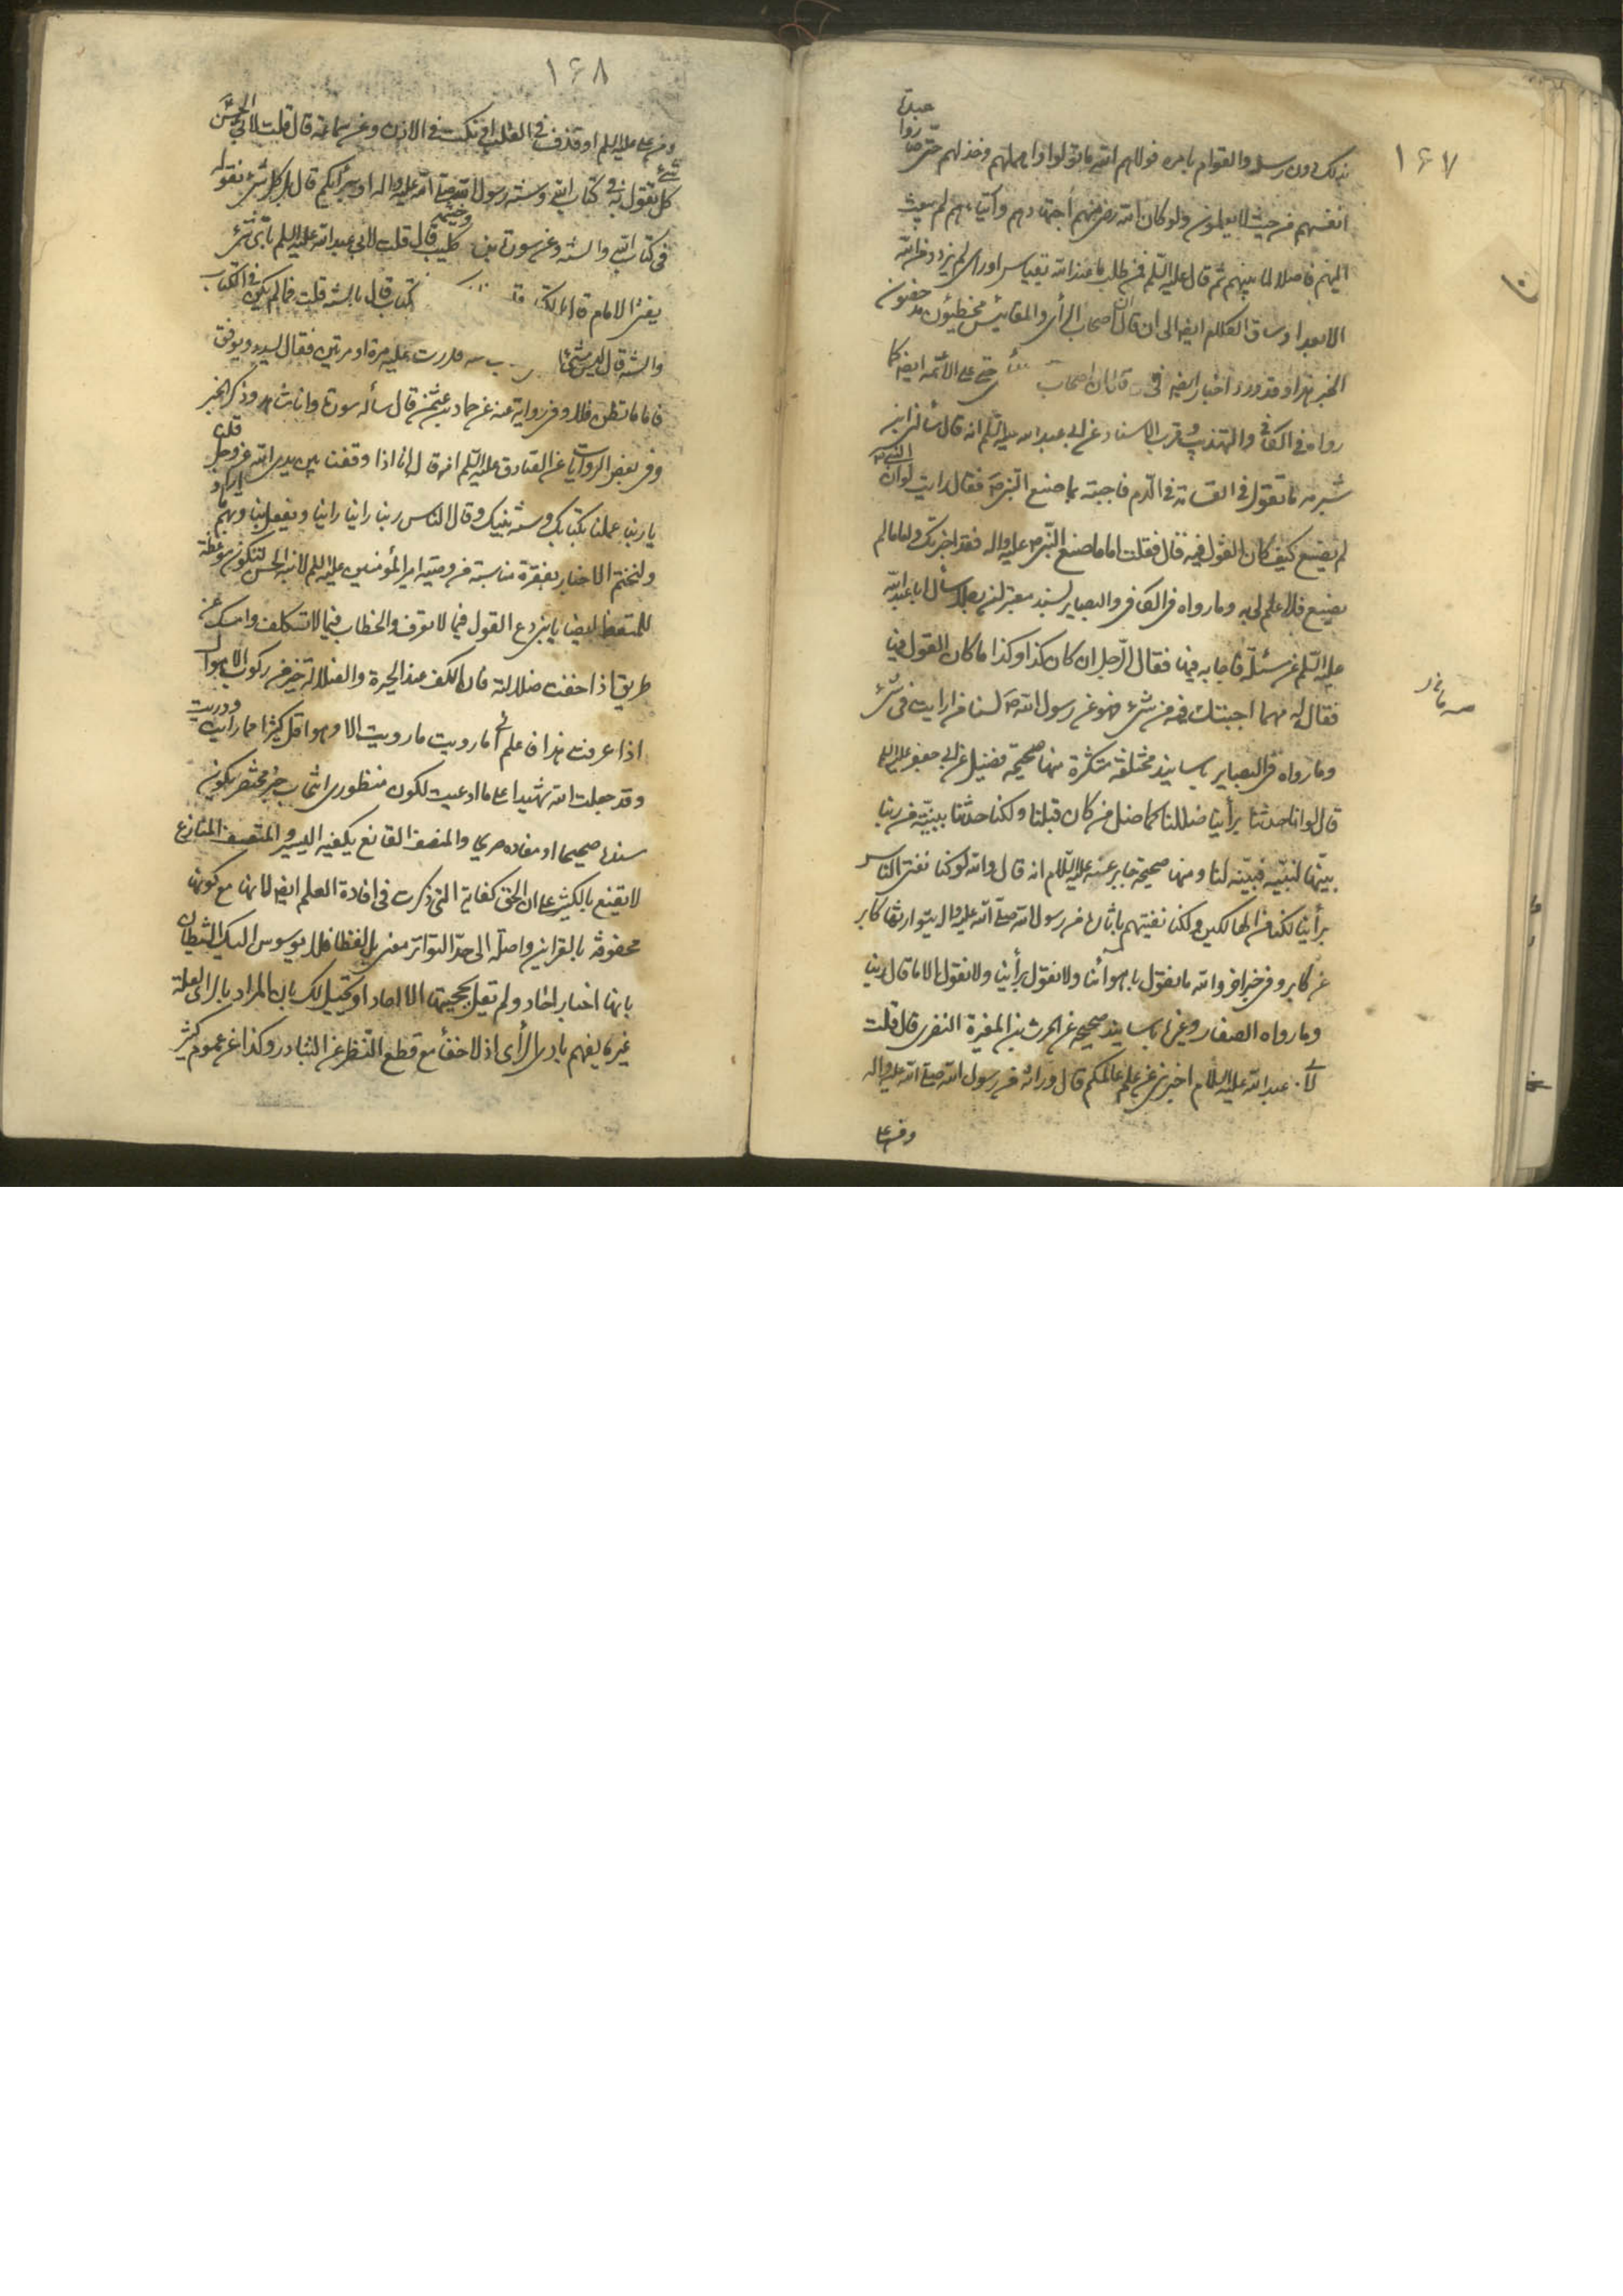 ١٦٧
بذلك دون رسله والقوام بامره فولاهم الله ما تولوا واهملهم وخذلهم حتى صاروا عبدة
انفسهم من حيث لا يعلمون ولو كان الله رضى منهم اجتهادهم وارتيائهم لم يبعث
اليهم فاصلا لما بينهم ثم قال عليه السلم فمن طلب ما عند الله بقياس وراى لم يزدد من الله
الا بعدا وساق الكلام ايضا الى ان قال ان اصحاب الرأى والمقائيس مخطئون مدحضون
الخبر هذا وقد ورد اخبار ايضا فى حتى على الأئمة ايضا كما
رواه فى الكافى والتهذيب وقرب الاسناد عن ابى عبد الله عليه السلم انه قال سألنى ابن
شبرمه ما تقول فى القسامة فى الدم فاجبته بما صنع النبى ص فقال ارايت لو ان النبى ص
لم يصنع كيف كان القول فيه قال فقلت اما ما صنع النبى ص عليه واله فقد اخبرتك واما ما لم
يصنع فلا علم لى به وما رواه فى الكافى والبصاير بسند معتبر ان رجلا سأل ابا عبد الله
عليه السلم عن مسئلة فاجابه فيها فقال الرجل ان كان كذا وكذا ما كان القول فيها
فقال له مهما اجبتك فيه من شىء فهو عن رسول الله ص لسنا من ارايت فى شىء
وما رواه فى البصاير باسانيد مختلفة متكثرة منها صحيحة فضيل عن ابى جعفر عليه السلم
قال لو انا حدثنا برأينا ضللنا كما ضل من كان قبلنا ولكنا حدثنا ببينة من ربنا
بينها لنبيه فبينه لنا ومنها صحيحة جابر عنه عليه السلام انه قال والله لو كنا نفتى الناس
برأينا لكنا من الهالكين ولكنا نفتيهم بآثار من رسول الله صلى الله عليه واله يتوارثها كابر
عن كابر وفى خبر اخر والله ما نقول باهوائنا ولا نقول برأينا ولا نقول الا ما قال ربنا
وما رواه الصفار وغيره باسانيد صحيحه عن الحرث بن المغيرة النضرى قال قلت
لأبى عبد الله عليه السلام اخبرنى عن علم عالمكم قال وراثة من رسول الله صلى الله عليه واله
ومن على
١٦٨
ومن على عليه السلم او قذف فى القلب او نكت فى الاذن وعن سماعة قال قلت لابى الحسن ع
كل شىء تقول به فى كتاب الله وسنة رسول الله صلى الله عليه واله او برأيكم قال بل كل شىء نقوله
فى كتاب الله والسنة وعن سورة بن كليب قال قلت لابى عبد الله عليه السلم باى شىء
يفتى الامام قال بالكتاب قلت كتاب قال بالسنة قلت فما لم يكن فى الكتاب
والسنة قال ليس شىء الا فكررت عليه مرة او مرتين فقال يسدد ويوفق
فاما ما تظن فلا وفى رواية عنه عن حماد بن عثمن قال سأله سورة وانا شاهد وذكر الخبر
وفى بعض الروايات عن الصادق عليه السلم انه قال انا اذا وقفنا بين يدى الله عز وجل قلنا
يا ربنا عملنا بكتابك وسنة نبيك وقال الناس ربنا راينا راينا ويفعل بنا وبهم ما اراد
ولنختم الاخبار بفقرة مناسبة من وصية امير المؤمنين عليه السلم لابنه الحسن لتكون موعظة
للمتعظ ايضا يا بنى دع القول فيما لا تعرف والخطاب فيما لا تكلف وامسك عن
طريق اذا خفت ضلالته فان الكف عند الحيرة والضلالة خير من ركوب الاهوال
اذا عرفت هذا فاعلم انى ما رويت ما رويت الا وهو اقل كثيرا مما رايت ودريت
وقد جعلت الله شهيدا على ما ادعيت لكون منظورى اثبات خبر مختصر يكون
سندها صحيحا او مفاده صريحا والمنصف القانع يكفيه اليسير والمتعسف المنازع
لا يقنع بالكثير على ان الحق كفاية التى ذكرت فى افادة العلم ايضا لانها مع كونها
محفوفة بالقراين واصلة الى حد التواتر معنى بل لفظا فلا يوسوس اليك الشيطان
بانها اخبار احاد ولم تعمل بحجيتها الا الاحاد او تخيل لك بان المراد بالراى لعله
غير ما يفهم بادى الرأى اذ لا خفأ مع قطع النظر عن التبادر وكذا عن عموم كثير